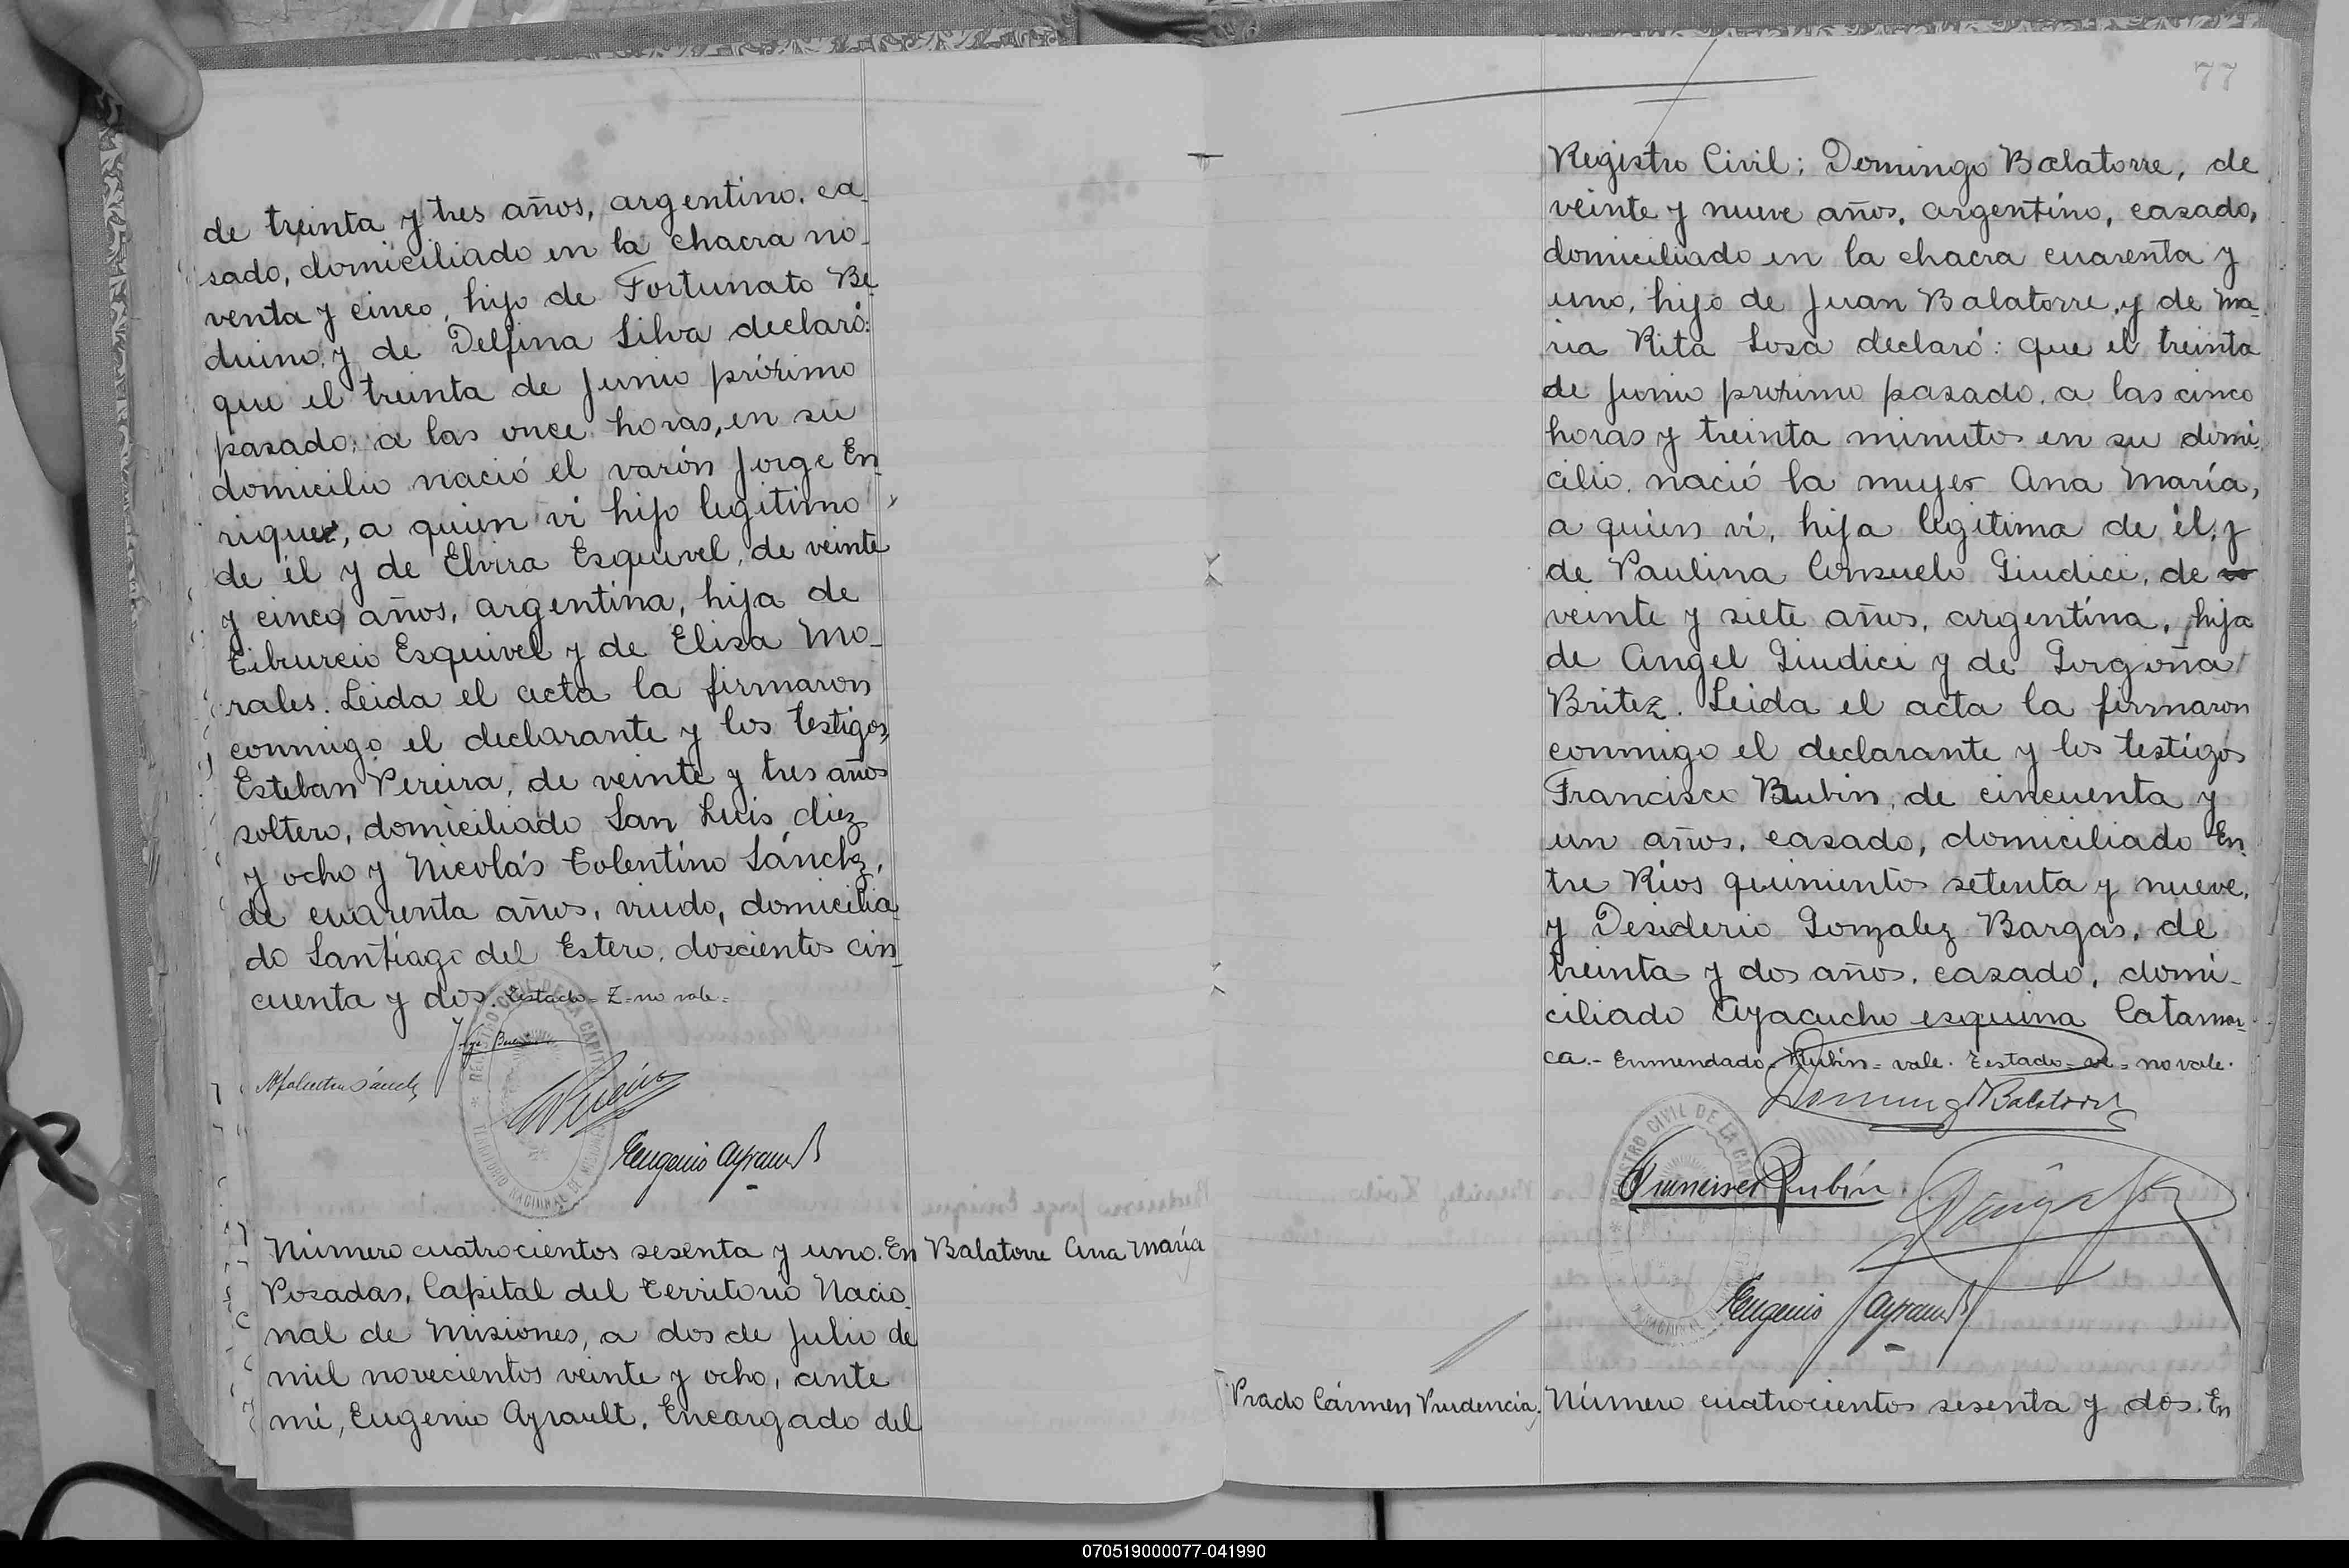 de treinta y tres años, argentino, ca
sado, domiciliado en la chacra no-
venta y cinco, hijo de Fortunato Be
duino, y de Delfina Silva declaró:
que el treinta de Junio próximo
pasado, a las once horas, en su
domicilio nació el varón Jorge En
rique, a quien vi hijo legitimo
de él y de Elvira Esquivel, de veinte
y cinco años, argentina, hija de
Tiburcio Esquivel y de Elisa Mo-
rales. Leida el acta la firmaron
conmigo el declarante y los testigos,
Esteban Pereira, de veinte y tres años
soltero, domiciliado San Luis diez
y ocho y Nicolás Tolentino Sánchz,
de cuarenta años, viudo, domicilia
do Santiago del Estero, doscientos cin-
cuenta y dos. Testado= Z= no vale=
REGISTRO CIVIL DE LA CAPITAL
TERRITORIO NACIONAL DE MISIONES
Eugenio Ayrault
Número cuatrocientos sesenta y uno. En
Balatorre Ana María
Posadas, Capital del Territorio Nacio-
nal de Misiones, a dos de Julio de
mil novecientos veinte y ocho, ante
mi, Eugenio Ayrault, Encargado del
77
Registro Civil; Domingo Balatorre, de
veinte y nueve años, argentino, casado,
domiciliado en la chacra cuarenta y
uno, hijo de Juan Balatorre, y de Ma-
ria Rita Sosa declaró: que el treinta
de Junio proximo pasado, a las cinco
horas y treinta minutos en su domi-
cilio, nació la mujer Ana María,
a quien vi, hija legitima de él, y
de Paulina Consuelo Giudici, de
veinte y siete años, argentina, hija
de Angel Giudici y de Gorgoña
Britez. Leida el acta la firmaron
conmigo el declarante y los testigos
Francisco Rubin, de cincuenta y
un años, casado, domiciliado En
tre Rios quinientos setenta y nueve,
y Desiderio Gonzalez Bargas, de
treinta y dos años, casado, domi-
ciliado Ayacucho esquina Catamar-
ca.- Enmendado= Rubin= vale. Testado= ve= no vale.
Domingo Balatorre
REGISTRO CIVIL DE LA CAPITAL
Francisco Rubín
Eugenio Ayrault
Prado Cármen Prudencia.
Número cuatrocientos sesenta y dos. En
070519000077-041990